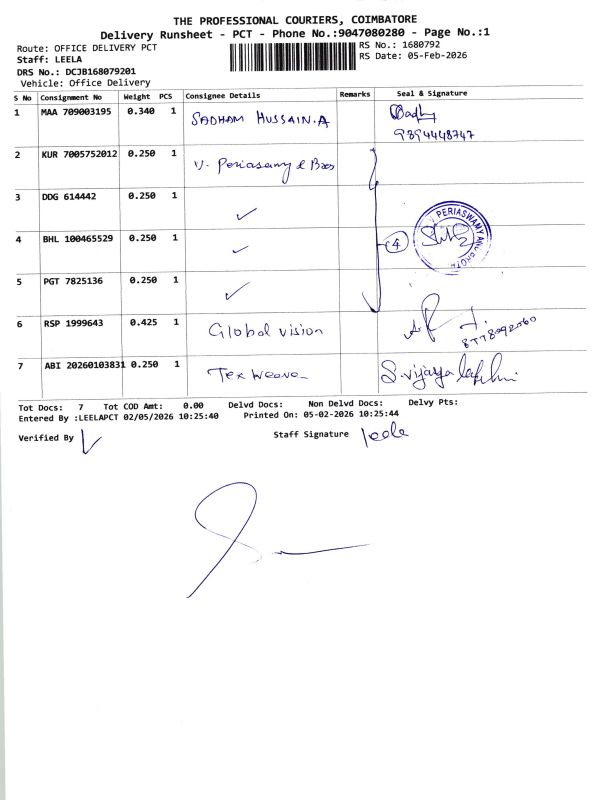 THE PROFESSIONAL COURIERS, COIMBATORE
Delivery Runsheet - PCT - Phone No.:9047080280 - Page No.:1
Route: OFFICE DELIVERY PCT
RS No.: 1680792
Staff: LEELA
RS Date: 05-Feb-2026
DRS No.: DCJB168079201
Vehicle: Office Delivery
S No Consignment No Weight PCS Consignee Details Remarks Seal & Signature
1 MAA 709003195 0.340 1 SADHAM HUSSAIN.A
9394448747
2 KUR 7005752012 0.250 1 V. Periasamy & Bros
3 DDG 614442 0.250 1 ✓
PERIASWAMY
4 BHL 100465529 0.250 1 ✓ 4
5 PGT 7825136 0.250 1 ✓
6 RSP 1999643 0.425 1 Global vision
7 ABI 20260103831 0.250 1 Tex Weave S. vijaya lakshmi
Tot Docs: 7 Tot COD Amt: 0.00 Delvd Docs: Non Delvd Docs: Delvy Pts:
Entered By :LEELAPCT 02/05/2026 10:25:40 Printed On: 05-02-2026 10:25:44
Verified By Staff Signature leela